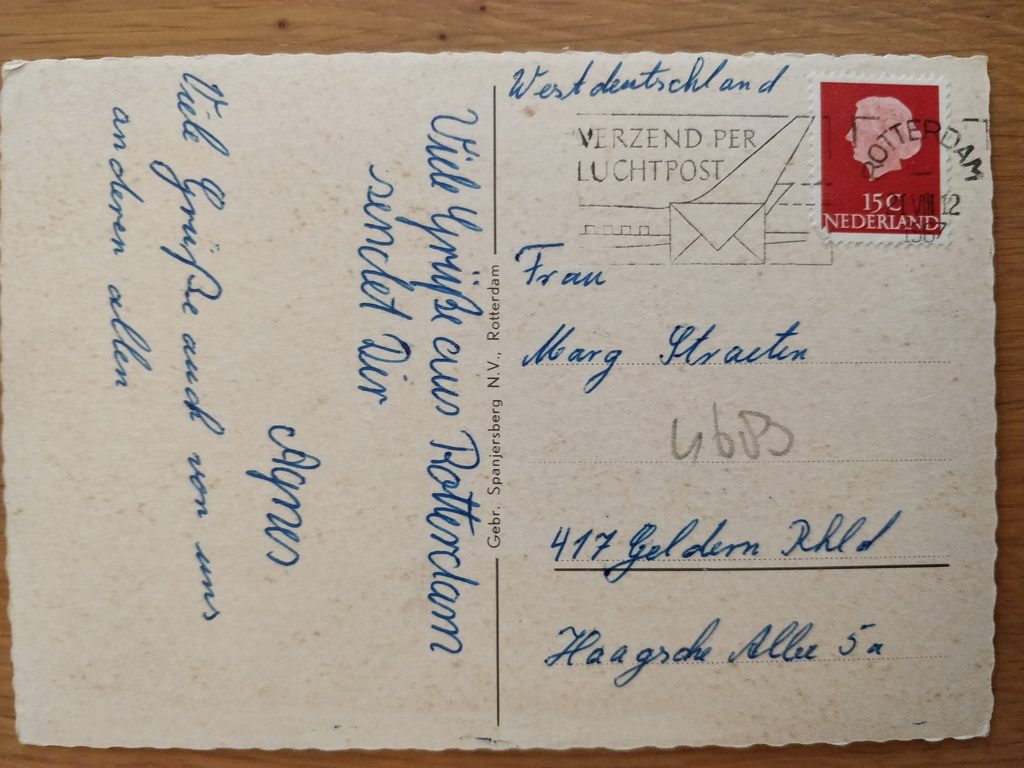 Viele Grüße aus Rotterdam
sendet Dir
Agnes
Viele Grüße auch von uns
anderen allen
Gebr. Spanjersberg N.V., Rotterdam
Westdeutschland
VERZEND PER
LUCHTPOST
ROTTERDAM
VIII 12
1967
15 C
NEDERLAND
Frau
Marg Straeten
417 Geldern Rhld
Haagsche Allee 5a